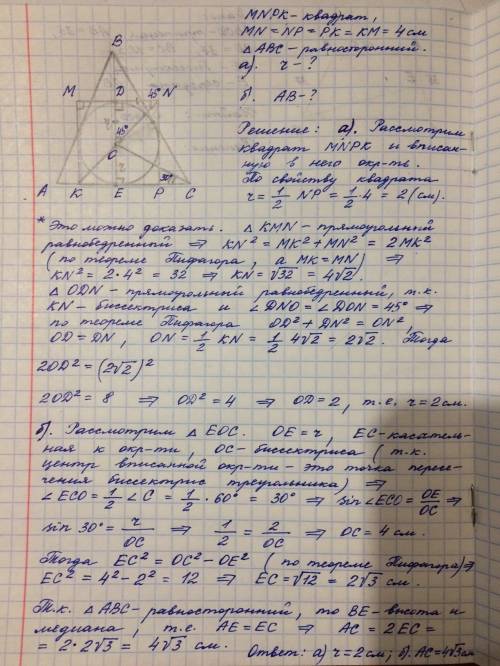 MNPK - квадрат,
MN = NP = PK = KM = 4 см
△ABC - равносторонний.
а). r - ?
б). AB - ?
B
M D 45° N
45°
O
30°
A K E P C
Решение: а). Рассмотрим
квадрат MNPK и вписан-
ную в него окр-ть.
По свойству квадрата
r = 1/2 NP = 1/2 · 4 = 2 (см).
* Это можно доказать. △KMN - прямоугольный
равнобедренный ⇒ KN² = MK² + MN² = 2MK²
(по теореме Пифагора, а MK = MN) ⇒
KN² = 2·4² = 32 ⇒ KN = √32 = 4√2.
△ODN - прямоугольный равнобедренный, т.к.
KN - биссектриса и ∠DNO = ∠DON = 45° ⇒
по теореме Пифагора OD² + DN² = ON²,
OD = DN, ON = 1/2 KN = 1/2 4√2 = 2√2. Тогда
2OD² = (2√2)²
2OD² = 8 ⇒ OD² = 4 ⇒ OD = 2, т.е. r = 2 см.
б). Рассмотрим △EOC. OE = r, EC - касатель-
ная к окр-ти, OC - биссектриса (т.к.
центр вписанной окр-ти - это точка пересе-
чения биссектрис треугольника) ⇒
∠ECO = 1/2 ∠C = 1/2 · 60° = 30° ⇒ sin∠ECO = OE/OC ⇒
sin 30° = r/OC ⇒ 1/2 = 2/OC ⇒ OC = 4 см.
Тогда EC² = OC² - OE² (по теореме Пифагора) ⇒
EC² = 4² - 2² = 12 ⇒ EC = √12 = 2√3 см.
Т.к. △ABC - равносторонний, то BE - высота и
медиана, т.е. AE = EC ⇒ AC = 2EC =
= 2·2√3 = 4√3 см.
Ответ: а) r = 2 см; б). AC = 4√3 см